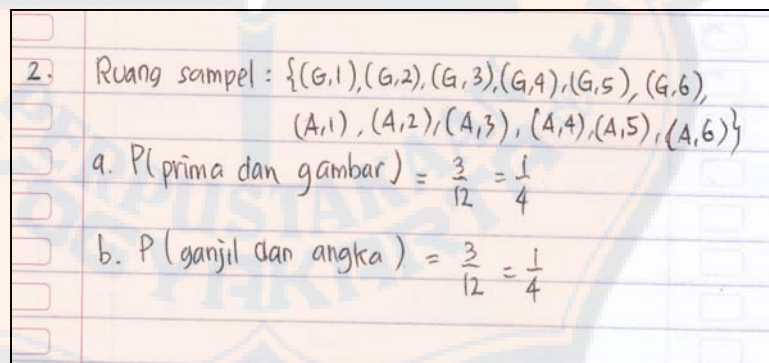 2. Ruang sampel : {(G,1),(G,2),(G,3),(G,4),(G,5),(G,6),
(A,1),(A,2),(A,3),(A,4),(A,5),(A,6)}
a. P(prima dan gambar) = 3/12 = 1/4
b. P(ganjil dan angka) = 3/12 = 1/4